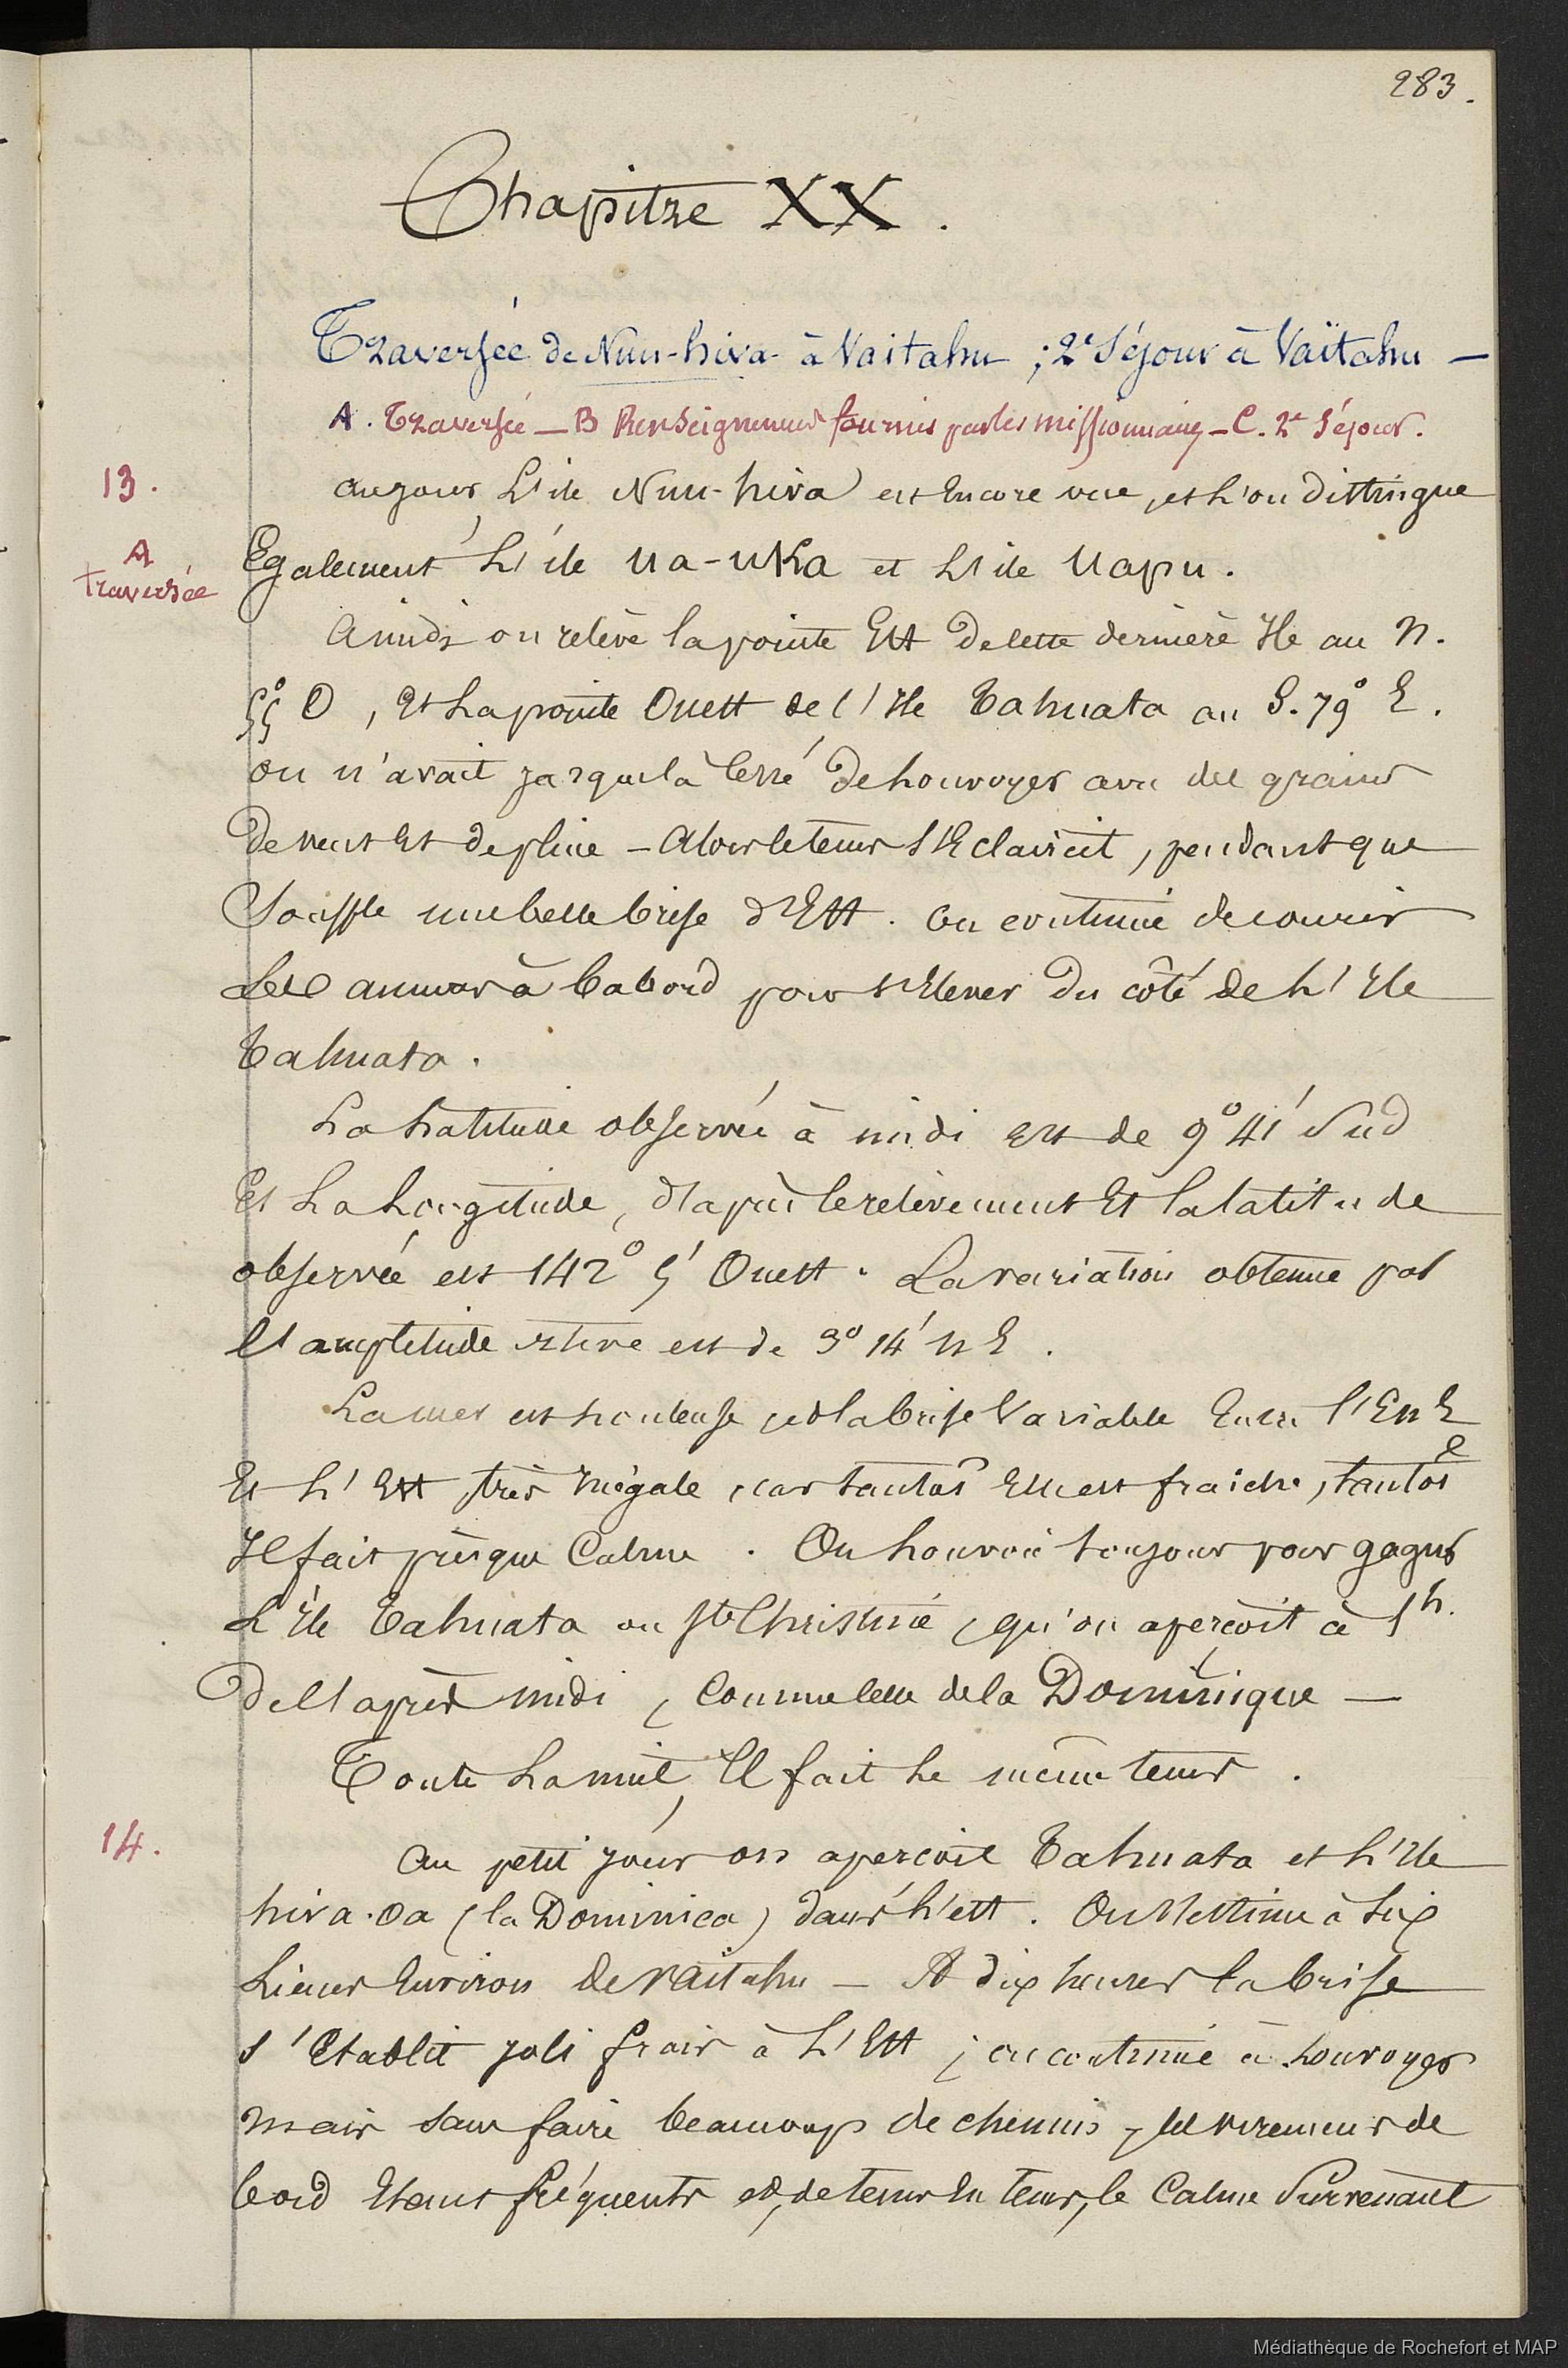 283.
Chapitre XX.
Traversée de Nuu-hiva à Vaitahu ; 2e Séjour à Vaïtahu —
A. Traversée — B Renseignemens fournis par les missionnaires — C. 2e Séjour.
13.
au jour L'ile Nuu-hiva est Encore vue, et L'on distingue
A
Traversée
Egalement L'île Ua-uKa et L'ile Uapu.
A midi on relève la pointe Est De cette dernière Ile au N.
55° O, Et La pointe Ouest de l'Ile Tahuata au S. 79° E.
on n'avait jusque là Cessé De Louvoyer avec des grains
De vent Et de pluie — Alors le tems s'Eclaircit, pendant que
Souffle une belle brise d'Est. On continue de courir
Les amures à babord pour s'Elever Du côté de L'Ile
Tahuata.
La Latitude observée à midi Est de 9° 41' Sud
Et La Longitude, d'après le relèvement Et la latitude
observée est 142° 5' Ouest. La variation obtenue par
l'amplitude ortive est de 3° 14' N E.
La mer est houleuse, et la brise Variable Entre l'EnE
Et L'Est, très Inégale, car tantôt Elle est fraiche, tantôt
Il fait presque Calme. On Louvoie toujours pour gagner
L'Ile Tahuata ou Ste Christine, qu'on aperçoit à 1h.
De l'après midi, Comme celle de la Dominique —
Toute La nuit, Il fait Le même tems.
14.
Au petit jour on aperçoit Tahuata et L'Ile
hiva-oa (la Dominica) dans L'est. On s'estime à Six
Lieues Environ de Vaitahu — A dix heures la brise
s'Etablit joli frais à L'Est ; on continue à Louvoyer
mais sans faire beaucoup de chemin, les viremens de
bord Etant fréquents et, de tems En tems, le Calme Survenant